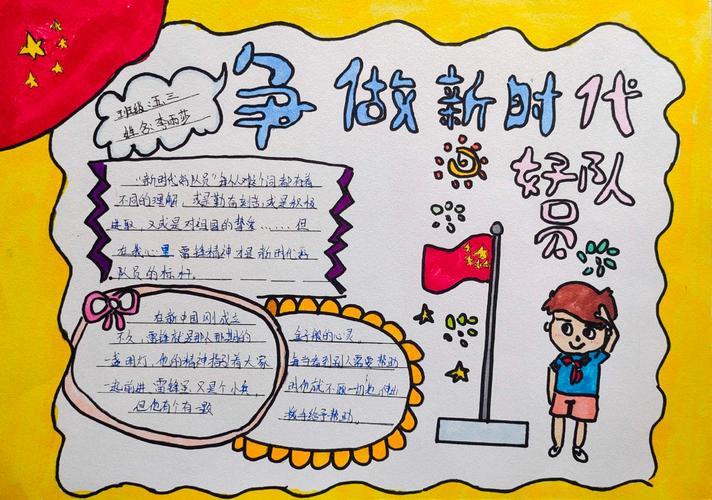 争做新时代
好队员
班级:五三
姓名:李雨莎
"新时代好队员"每个人对这个词都有着
不同的理解,或是勤奋刻苦,或是积极
进取,又或是对祖国的挚爱……但
在我心里雷锋精神才是新时代好
队员的标杆。
在新中国刚成立
不久,雷锋就是那时期的
一盏明灯,他的精神指引着大家
一起前进,雷锋虽又是个小兵,
但他有个有一颗
金子般的心灵,
每当看到别人需要帮助
时他就不顾一切地伸出
援手给予帮助。